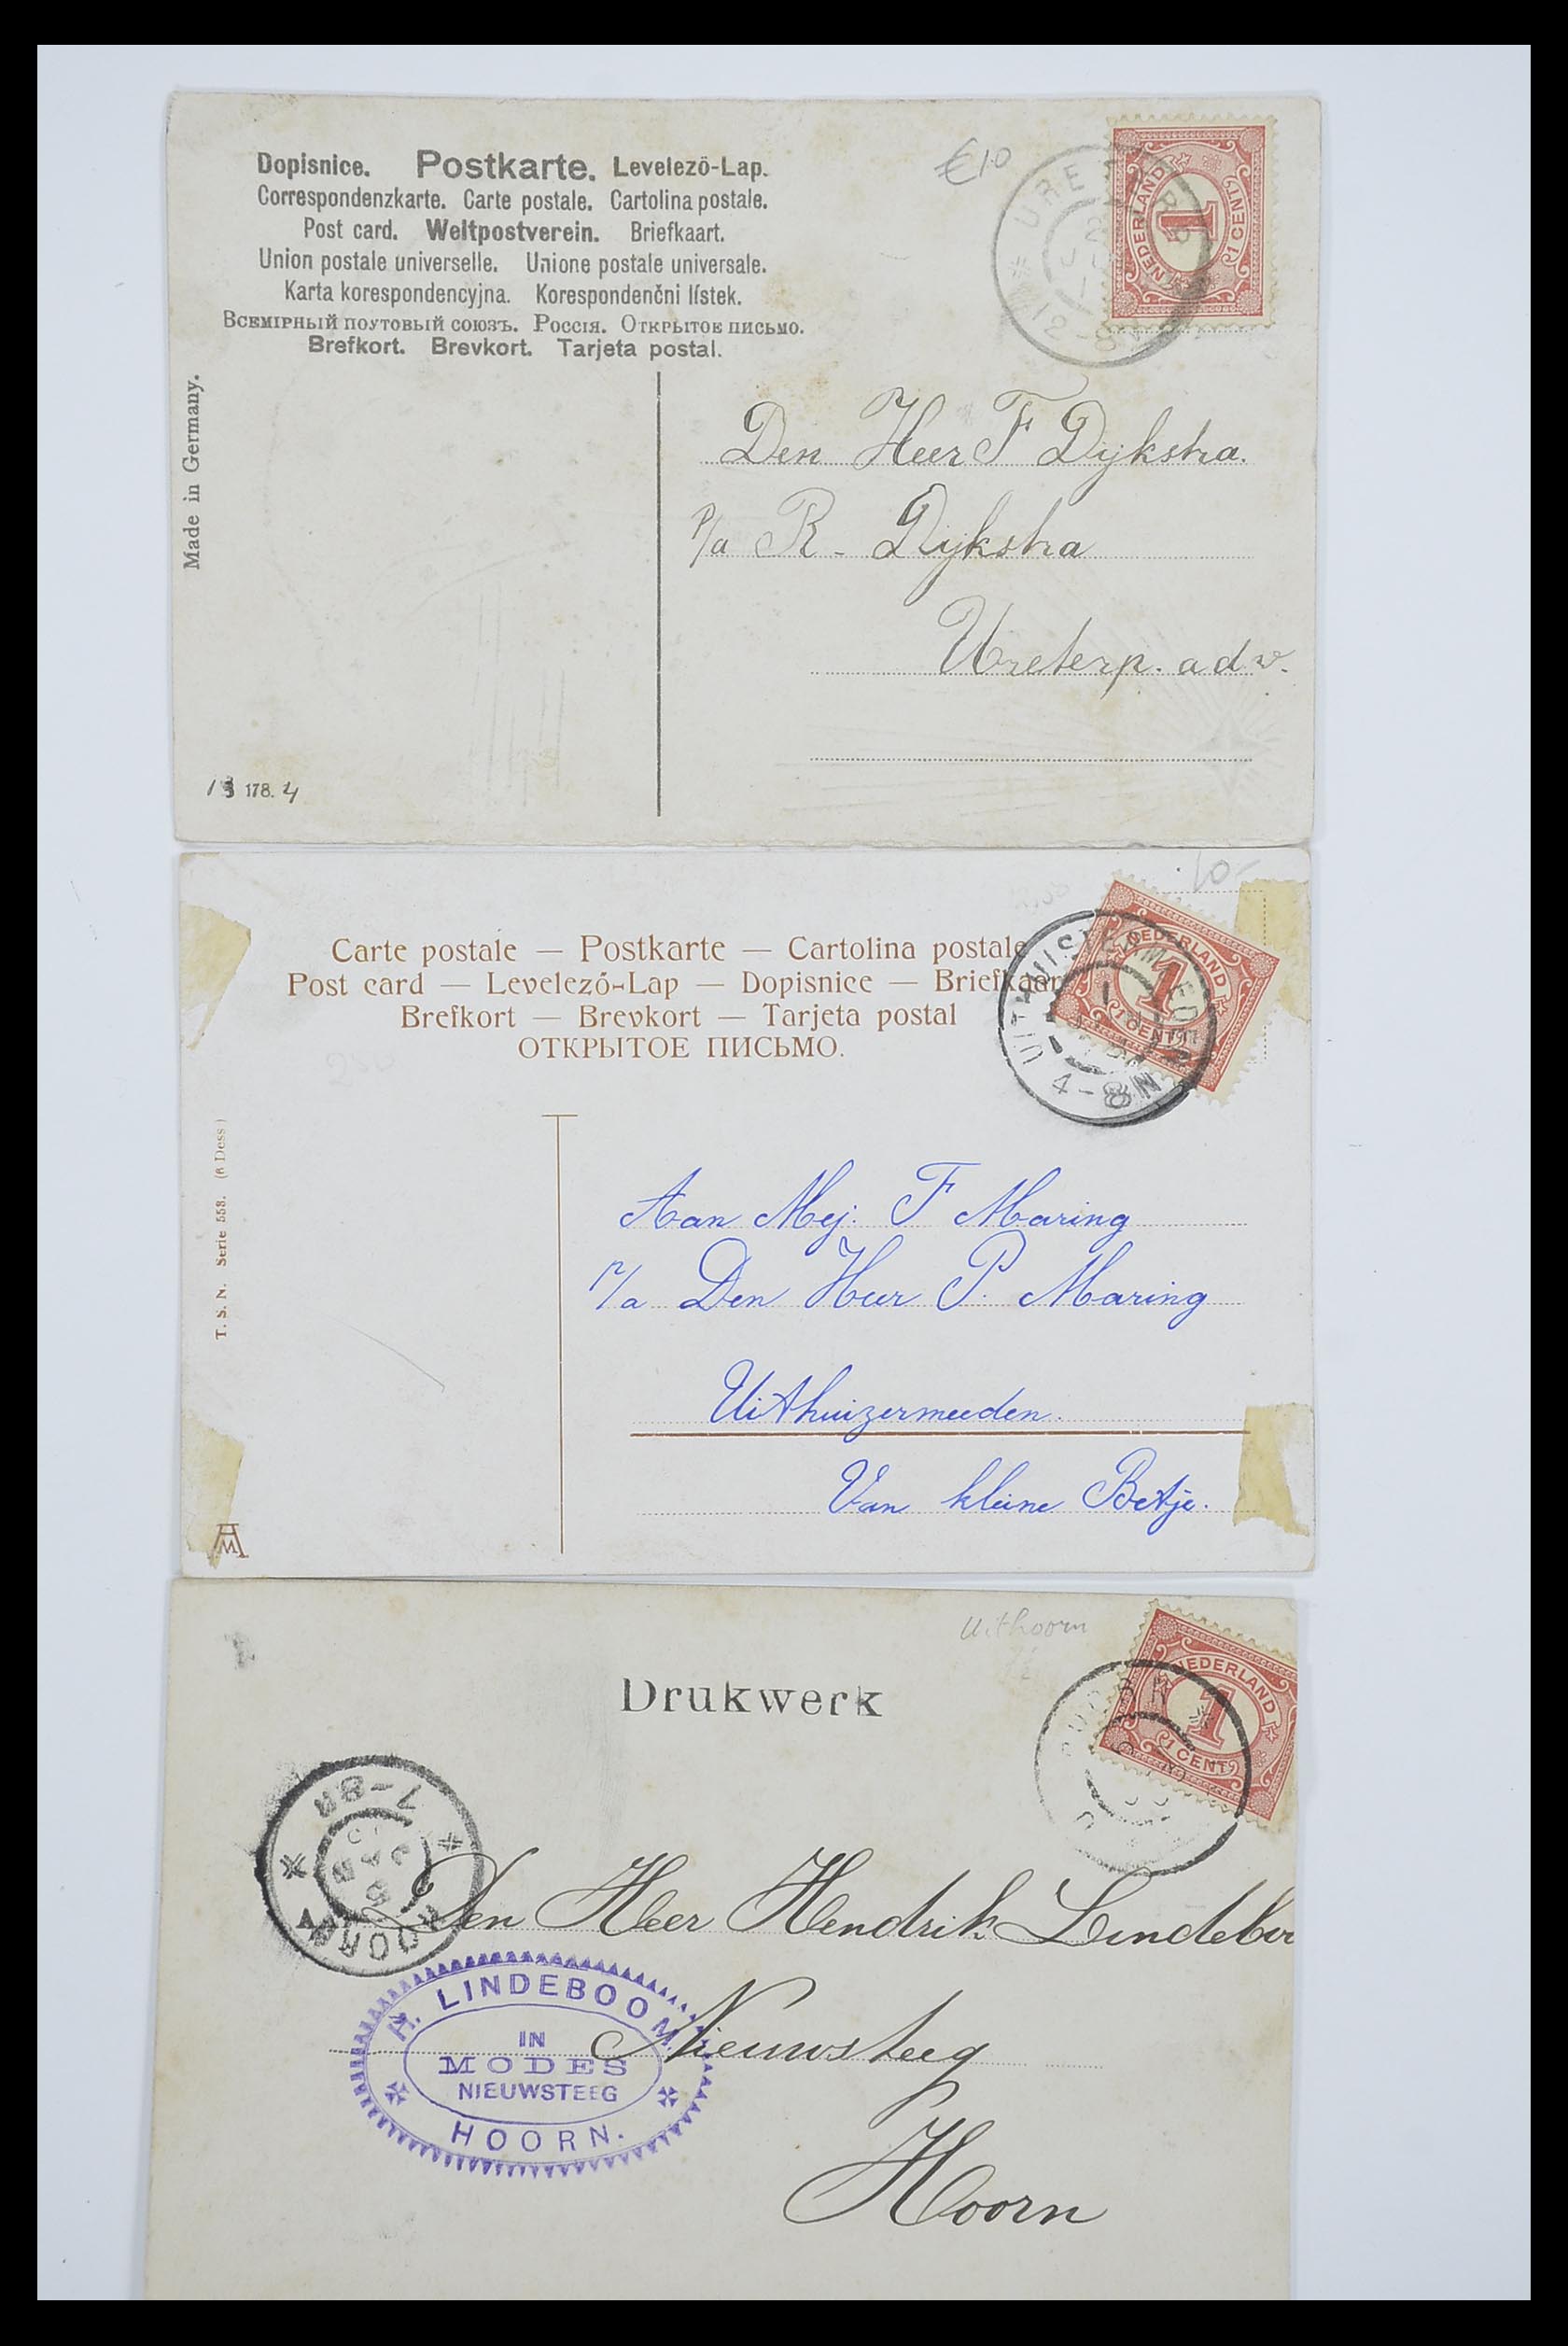 Dopisnice. Postkarte. Levelező-Lap.
Correspondenzkarte. Carte postale. Cartolina postale.
Post card. Weltpostverein. Briefkaart.
Union postale universelle. Unione postale universale.
Karta korespondencyjna. Korespondenčni lístek.
Всемірный поутовый союзъ. Россія. Открытое письмо.
Brefkort. Brevkort. Tarjeta postal.
€10
NEDERLAND
1
1 CENT
12-8
Made in Germany.
Den Heer F Dijkstra.
p/a R - Dijkstra
Ureterp. a d w.
178. 4
10-
Carte postale — Postkarte — Cartolina postale
Post card — Levelező-Lap — Dopisnice — Briefkaar
Brefkort — Brevkort — Tarjeta postal
ОТКРЫТОЕ ПИСЬМО.
NEDERLAND
1
1 CENT
4-8N
T. S. N. Serie 558. (6 Dess)
Aan Mej: F Maring
p/a Den Heer P. Maring
Uithuizermeeden.
Van kleine Betje.
Uithoorn
Drukwerk
NEDERLAND
1
1 CENT
7-8N
HOORN
Den Heer Hendrik Lindebo
H. LINDEBOOM.
IN
MODES
NIEUWSTEEG
HOORN.
Nieuwsteeg
Hoorn